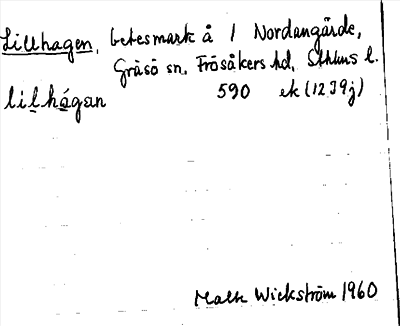 Lillhagen, betesmark å 1 Nordangärde,
Gräsö sn, Frösåkers hd, Sthlms l.
lilhágan 590 ek (12 I 9 j)
Malte Wickström 1960